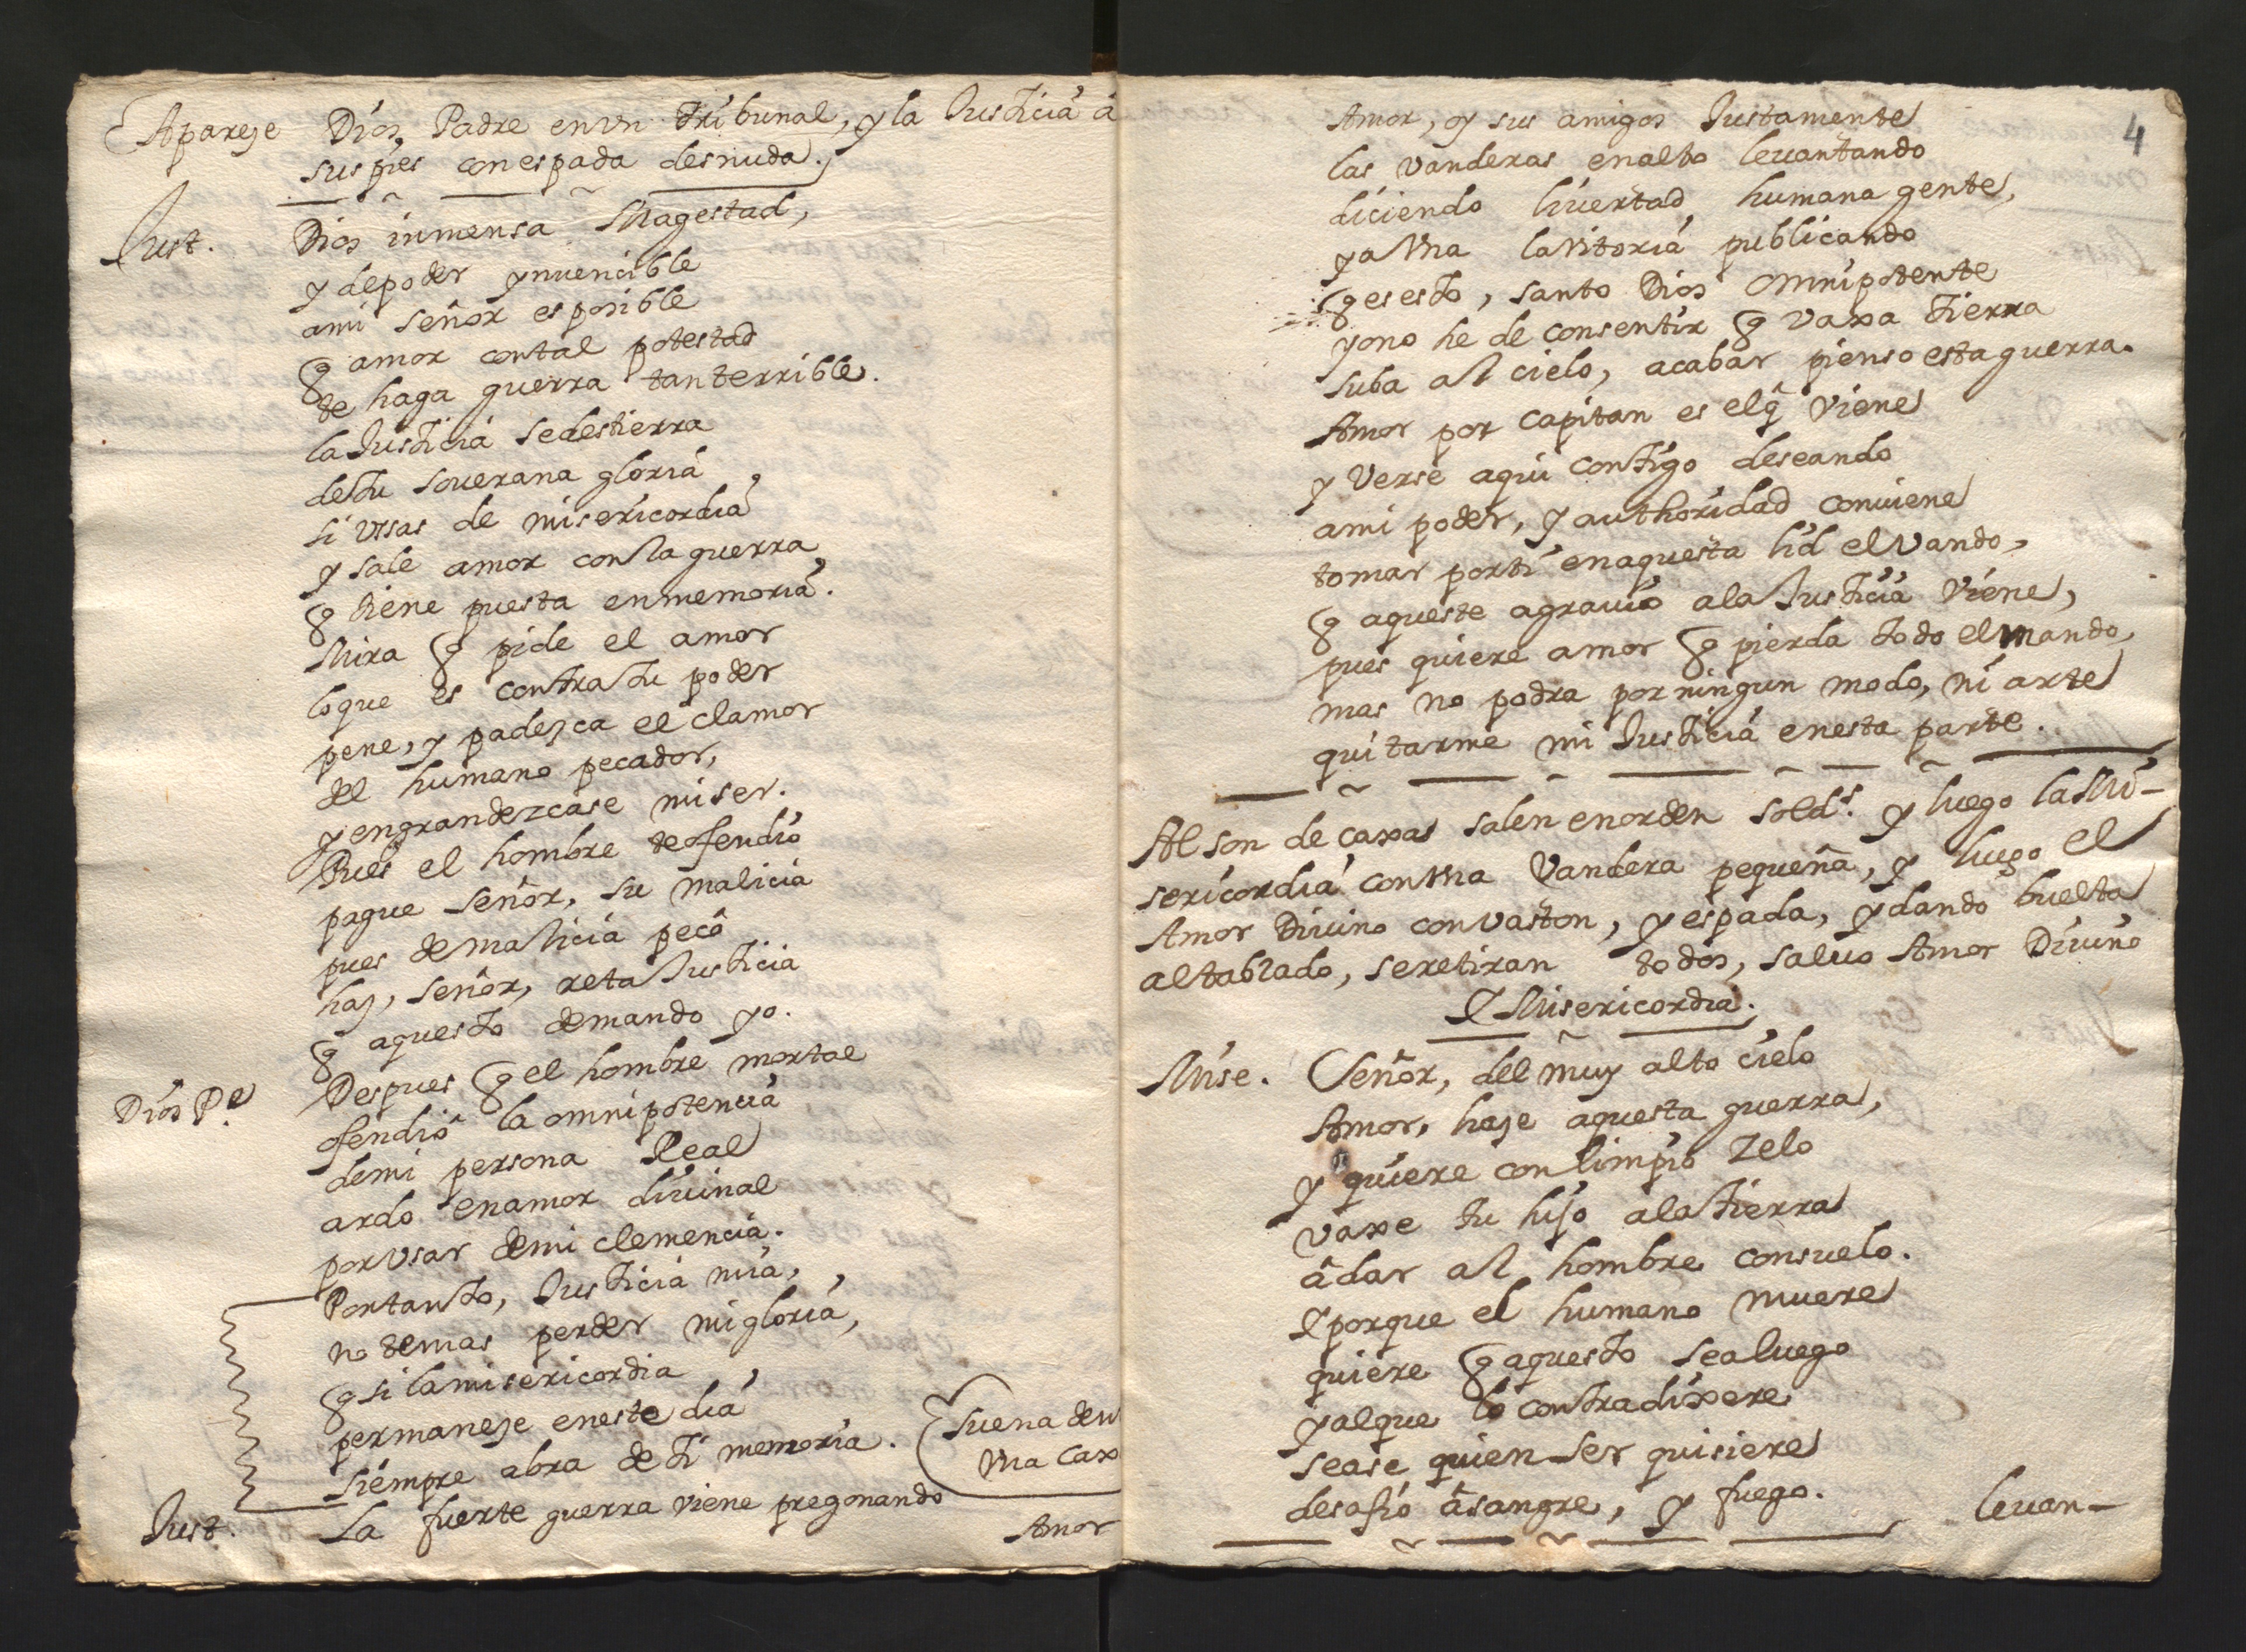 Apareze Dios Padre en vn tribunal, y la Justicia á
sus pies con espada desnuda.
Just. Dios inmensa Magestad,
y de poder ynuencible
a mi señor es posible
q amor con tal potestad
te haga guerra tan terrible.
la Justicia se destierra
de tu souerana gloria,
si vssas de misericordia
y sale amor con la guerra,
q tiene puesta en memoria.
Mira q pide el amor
lo que es contra tu poder
pene, y padezca el clamor
del humano pecador,
y engrandezcase mi ser.
Pues el hombre te ofendio
pague señor, su malicia
pues de malicia pecô
haz, señor, reta Justicia
q aquesto demando yo.
Dios Pe. Despues q el hombre mortal
ofendiô la omnipotencia
de mi persona Real
ardo en amor diuinal
por vsar de mi clemencia.
Por tanto, Justicia mia,
no temas perder mi gloria,
q si la misericordia
permaneze en este dia,
siempre abra de ti memoria.
Suena den
vna Cax
Just. La fuerte guerra viene pregonando
Amor
4
Amor, y sus amigos Justamente
las vanderas en alto leuantando
diciendo liuertad humana gente,
y a vna la vitoria publicando
q es esto, santo Dios omnipotente
yo no he de consentir q vaxa tierra
suba al cielo, acabar pienso esta guerra.
Amor por capitan es el q̃ viene
y verse aqui contigo deseando
a mi poder, y authoridad conuiene
tomar por ti en aquesta lid el vando,
q aqueste agrauio a la Justicia viene,
pues quiere amor q pierda todo el mando,
mas no podra por ningun modo, ni arte
quitarme mi Justicia en esta parte.
Al son de caxas salen en orden solds. y luego la Mi-
sericordia con vna Vandera pequeña, y luego el
Amor Diuino con vaston, y espada, y dando buelta
al tablado, se retiran todos, saluo Amor Diuino
Y Misericordia.
Mise. Señor, del muy alto cielo
Amor, haze aquesta guerra,
y quiere con limpio zelo
vaxe tu hijo a la tierra
â dar al hombre consuelo.
Y porque el humano muere
quiere q aquesto sea luego
y al que lo contradixere
sease quien ser quisiere
desafio â sangre, y fuego.
leuan-